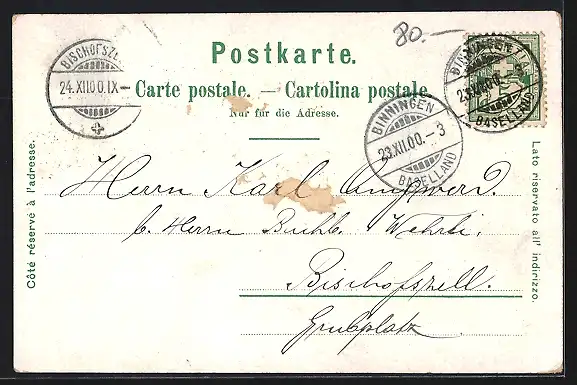 80.-
Postkarte.
BISCHOFSZ
24.XII.00.IX-
Carte postale. — Cartolina postale.
Nur für die Adresse.
BINNINGEN
23.XII.00.-3
BASELLAND
BINNINGEN
23.XII.00
BASELLAND
Côté réservé à l'adresse.
Lato riservato all' indirizzo.
Herrn Karl
b. Herrn Buchb. Wehrli,
Bischofszell.
Grubplatz